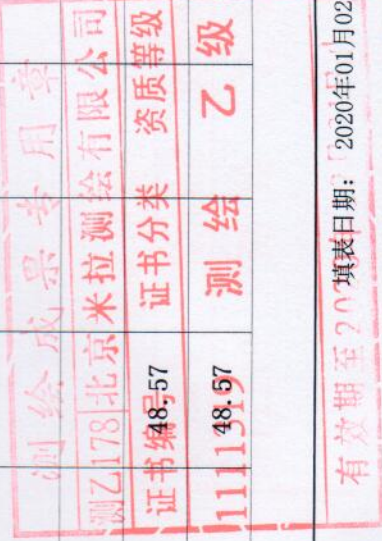 测绘成果专用章
测乙178 北京米拉测绘有限公司
证书编号 证书分类 资质等级
48.57
1111519 测绘 乙级
48.57
有效期至20
填表日期: 2020年01月02